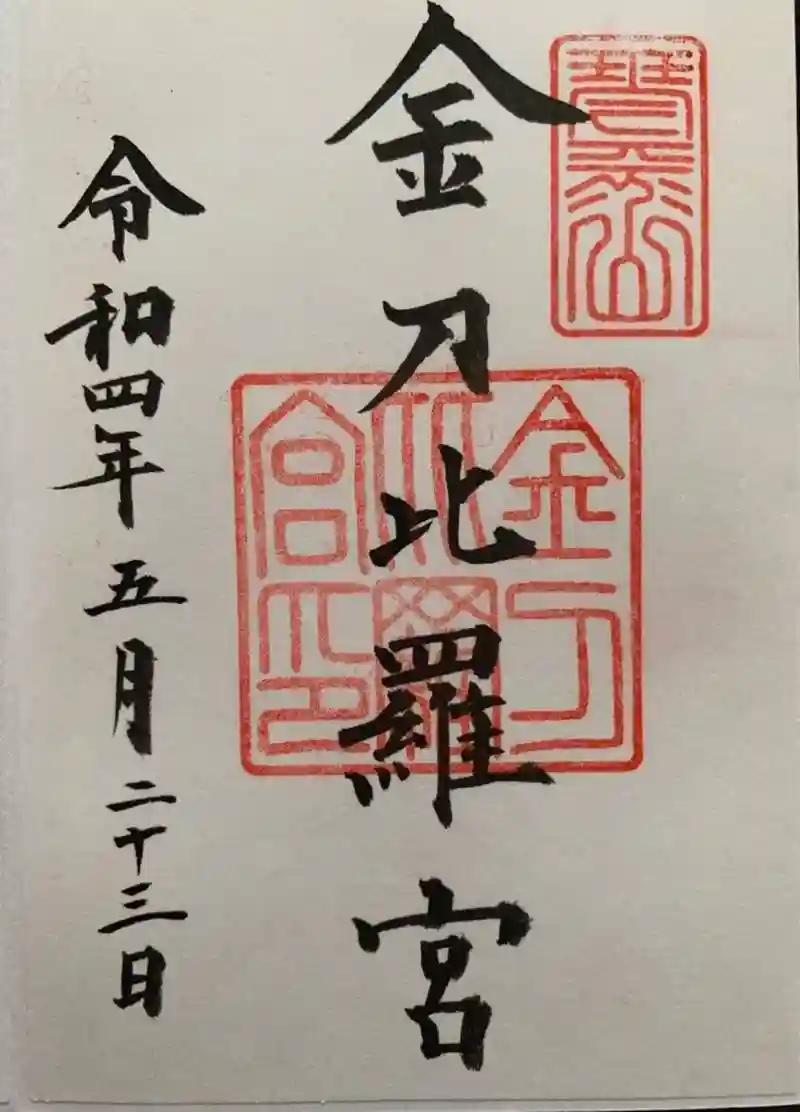 琴平山
金刀比羅宮
金刀
比羅
宮印
令和四年五月二十三日